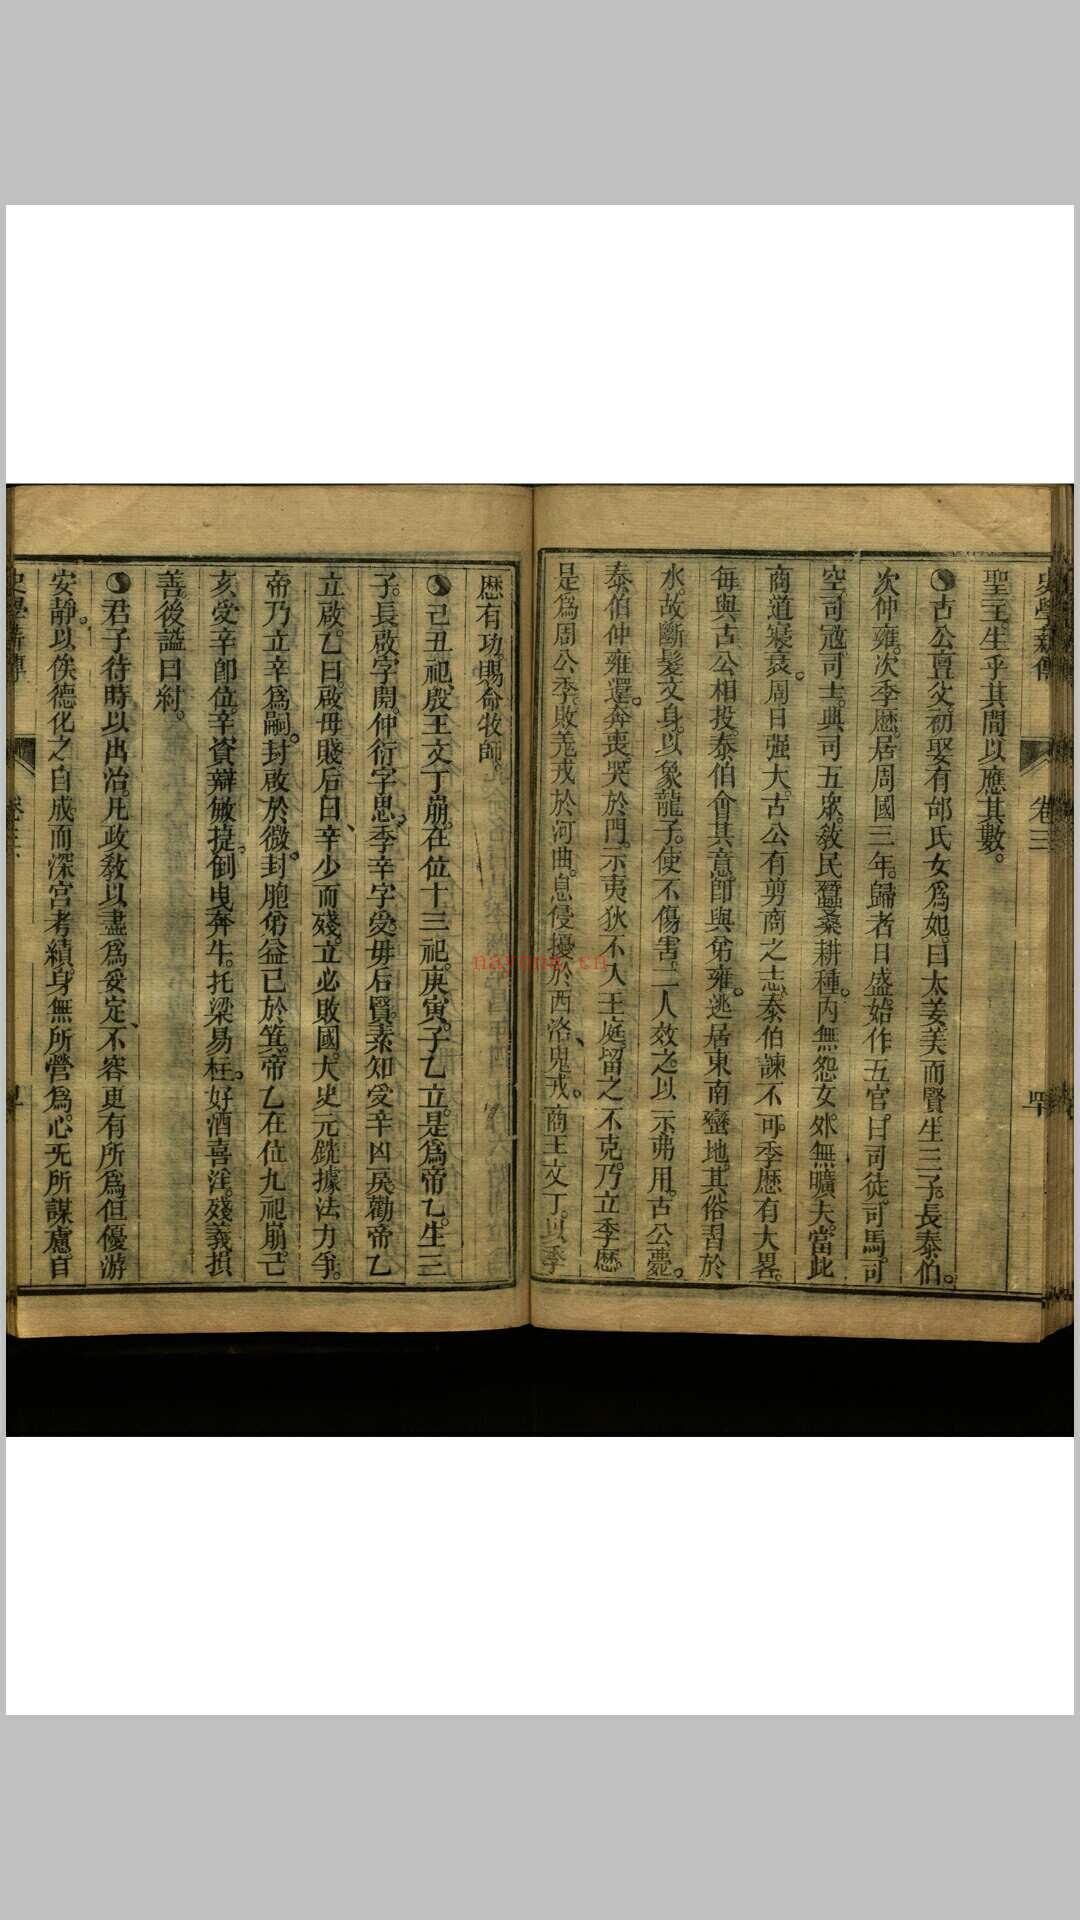 卷三
聖王生乎其間以應其數。
古公亶父初娶有邰氏女爲妃。曰太姜美而賢。生三子。長泰伯。
次仲雍。次季歷。居周國三年。歸者日盛。始作五官。曰司徒。司馬。司
空。司寇。司士。典司五衆。敎民蠶桑耕種。內無怨女。外無曠夫。當此
商道寖衰。周日强大。古公有剪商之志。泰伯諫不可。季歷有大畧。
每與古公相投。泰伯會其意。卽與弟雍。逃居東南蠻地。其俗習於
水。故斷髮文身。以象龍子。使不傷害。二人效之。以示弗用。古公薨。
泰伯仲雍還。奔喪。哭於門。示夷狄不入王庭。留之不克。乃立季歷。
是爲周公季。敗羗戎於河曲。息侵擾於西洛、鬼戎。商王文丁。以季
歷有功。賜命牧師。
己丑祀。殷王文丁崩。在位十三祀。庚寅。子乙立。是爲帝乙。生三
子。長啟字開。仲衍字思。季辛字受。毋后賢。素知受辛凶戾。勸帝乙
立啟。乙曰。啟毋賤。后曰、辛少而殘。立必敗國。大史元銑據法力爭。
帝乃立辛爲嗣。封啟於微。封胞弟益己於箕。帝乙在位九祀崩。己
亥。受辛卽位。辛資辯敏捷。倒曳奔牛。托梁易柱。好酒喜淫。殘義損
善。後謚曰紂。
君子待時以出治。凡政敎以盡爲妥定、不容更有所爲。但優游
安靜。以俟德化之自成。而深宮考績。身無所營爲。心无所謀慮。自
nayona.cn